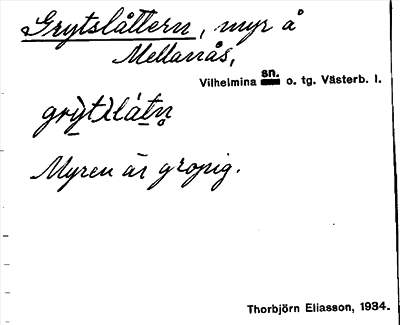 Grytslåttern, myr å
Mellanås,
Vilhelmina sn. o. tg. Västerb. l.
Myren är gropig.
Thorbjörn Eliasson, 1934.